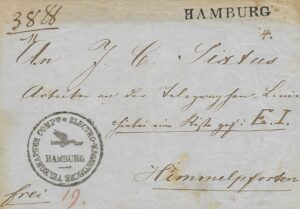 3888
HAMBURG
An J. C. Sixtus
Arbeiter an der Telegraphen Linie
hiebei eine Kiste gez: E. I.
ELECTRO-MAGNETISCHE TELEGRAPHEN COMPT.
HAMBURG
Himmelpforten
frei
19.